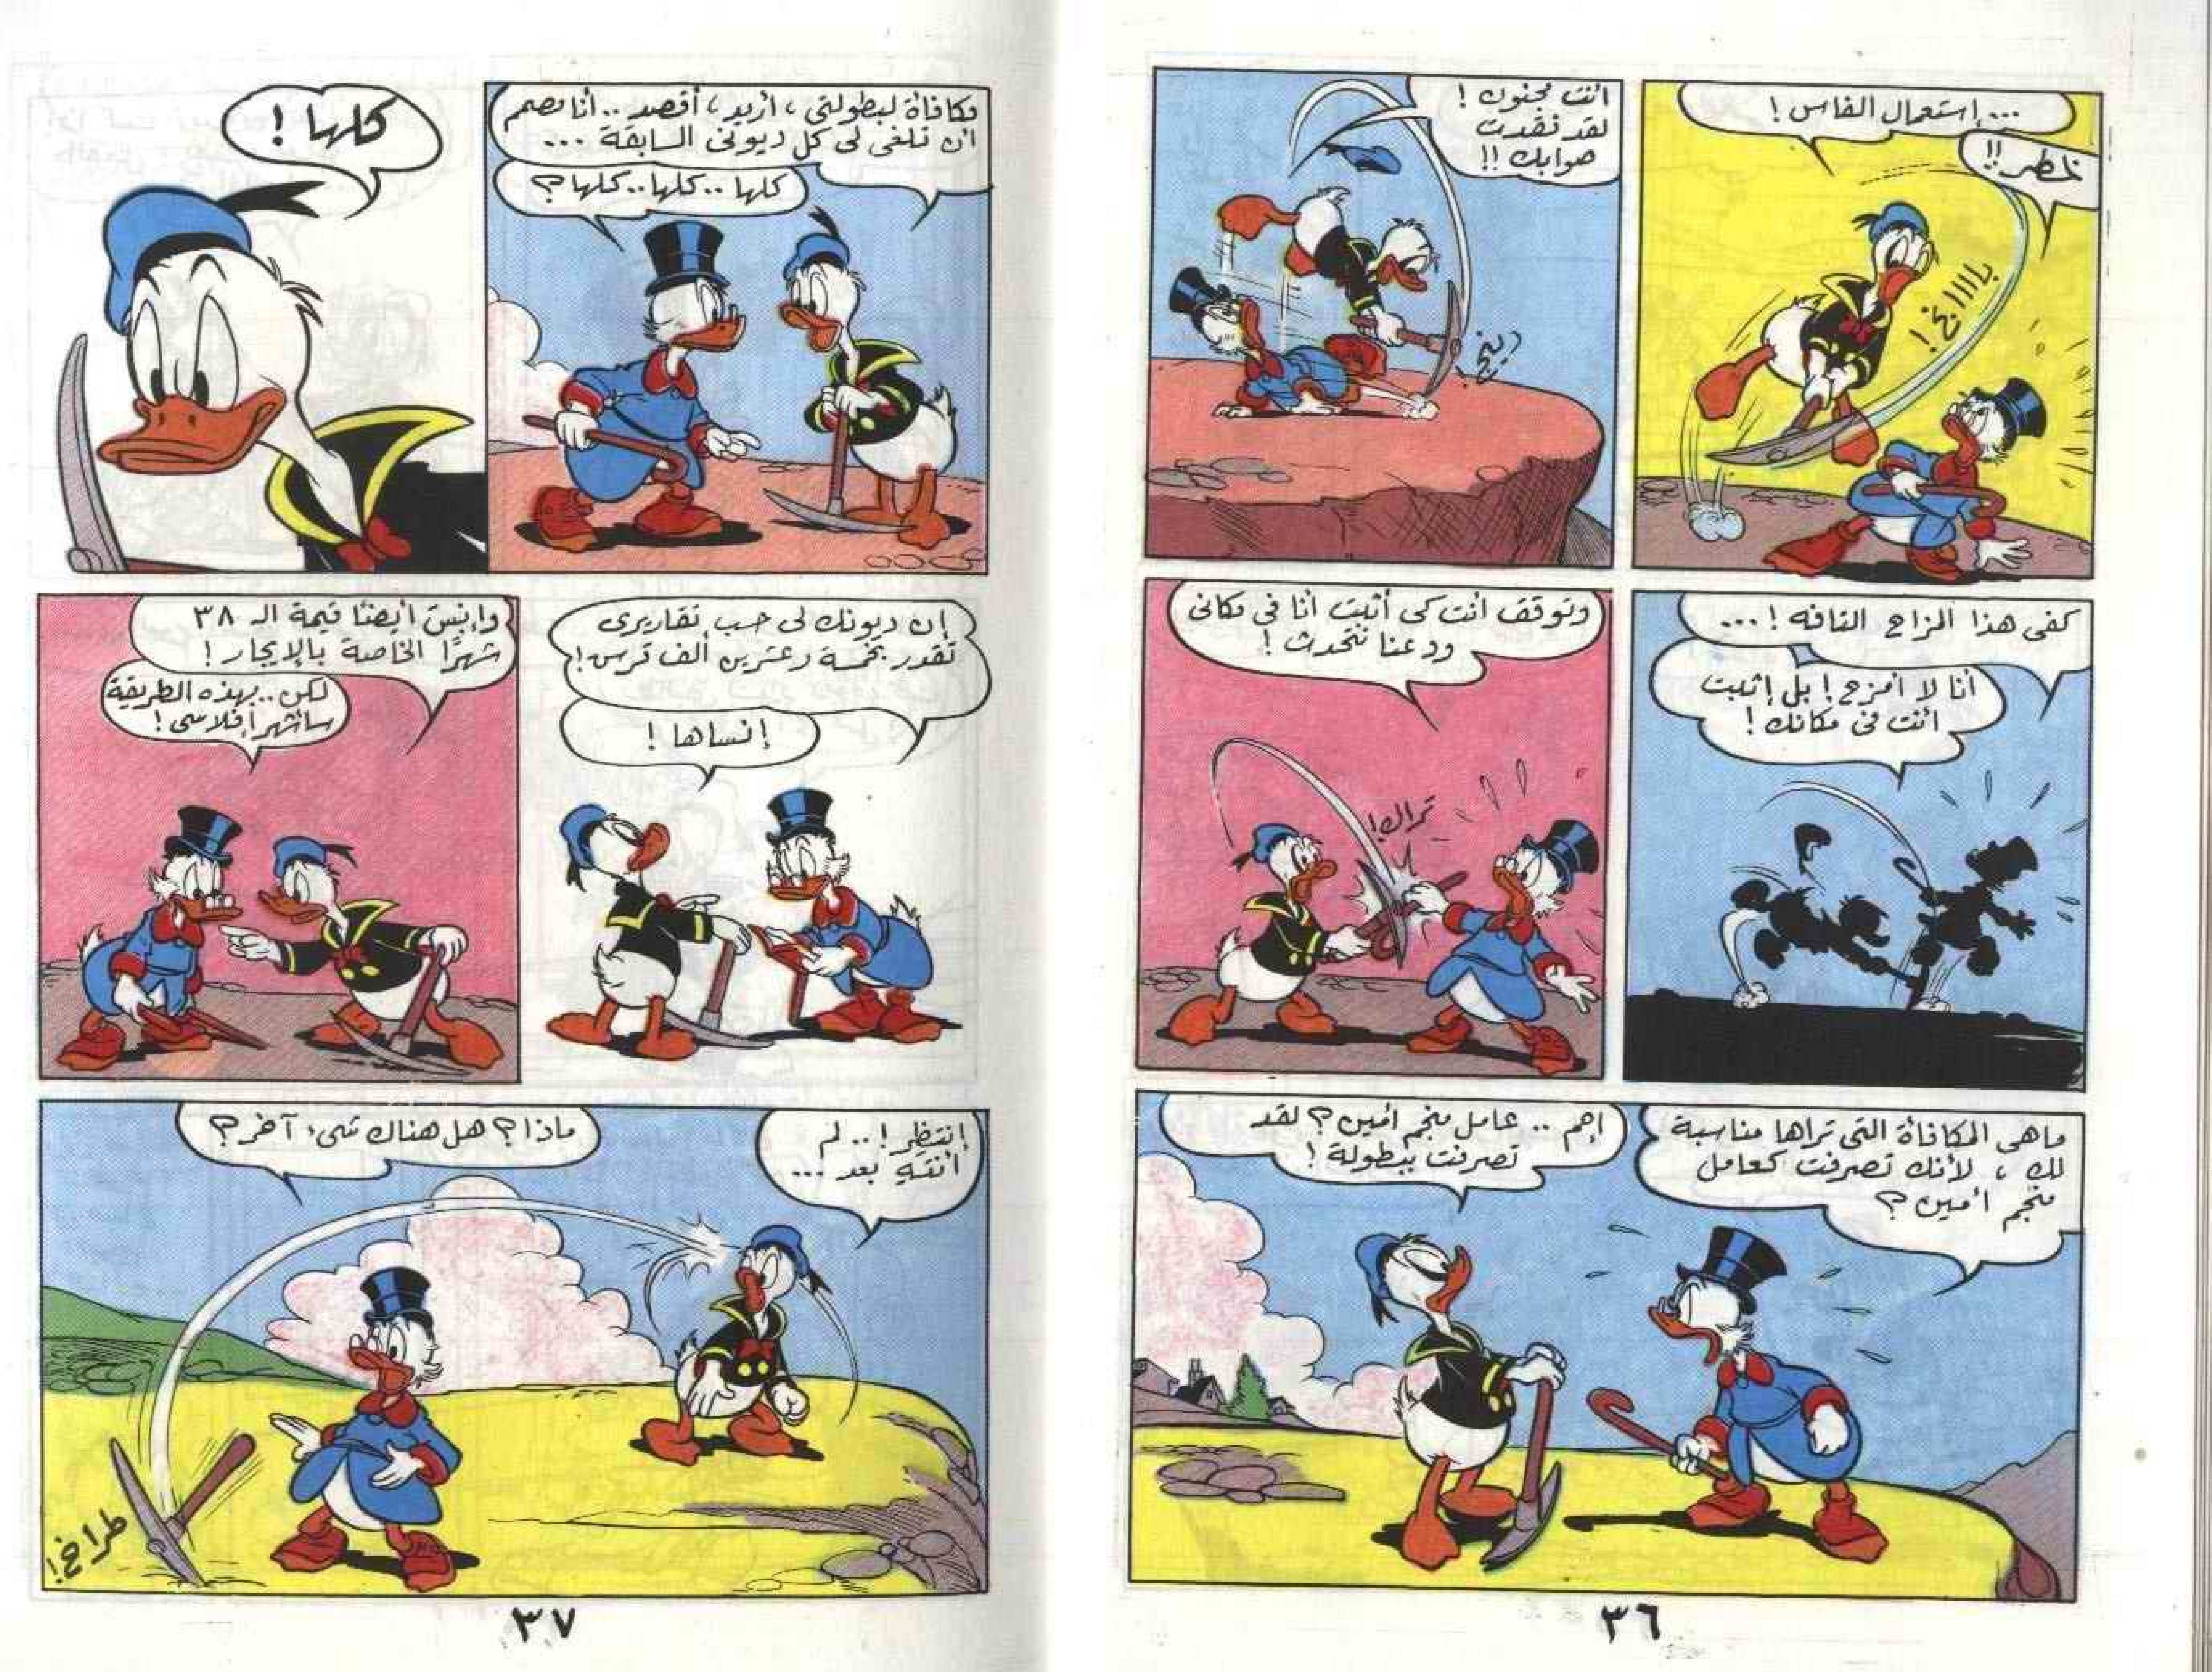 ...إستعمال الفاس !
خطر !!
بااااغ !
أنت مجنون !
لقد فقدت
صوابك !!
دينج !
كفى هذا المزاح التافه ! ...
أنا لا أمزح ! بل إثبت
أنت فى مكانك !
وتوقف أنت كى أثبت أنا فى مكانى
ودعنا نتحدث !
تراك !
ماهى المكافأة التى تراها مناسبة
لك ، لأنك تصرفت كعامل
منجم أمين ؟
إهم .. عامل منجم أمين ؟ لقد
تصرفت ببطولة !
٣٦
مكافأة لبطولتى ، أريد ، أقصد .. أنا مصمم
أن تلغى لى كل ديونى السابقة ...
كلها .. كلها .. كلها ؟
كلها !
إن ديونك لى حسب تقاريرى
تقدر بخمسة وعشرين ألف قرس !
إنساها !
وإنس أيضًا قيمة الـ ٣٨
شهرًا الخاصة بالإيجار !
لكن .. بهذه الطريقة
سأشهر إفلاسى !
إنتظر ! .. لم
أنته بعد ...
ماذا ؟ هل هناك شىء آخر ؟
طراخ !
٣٧